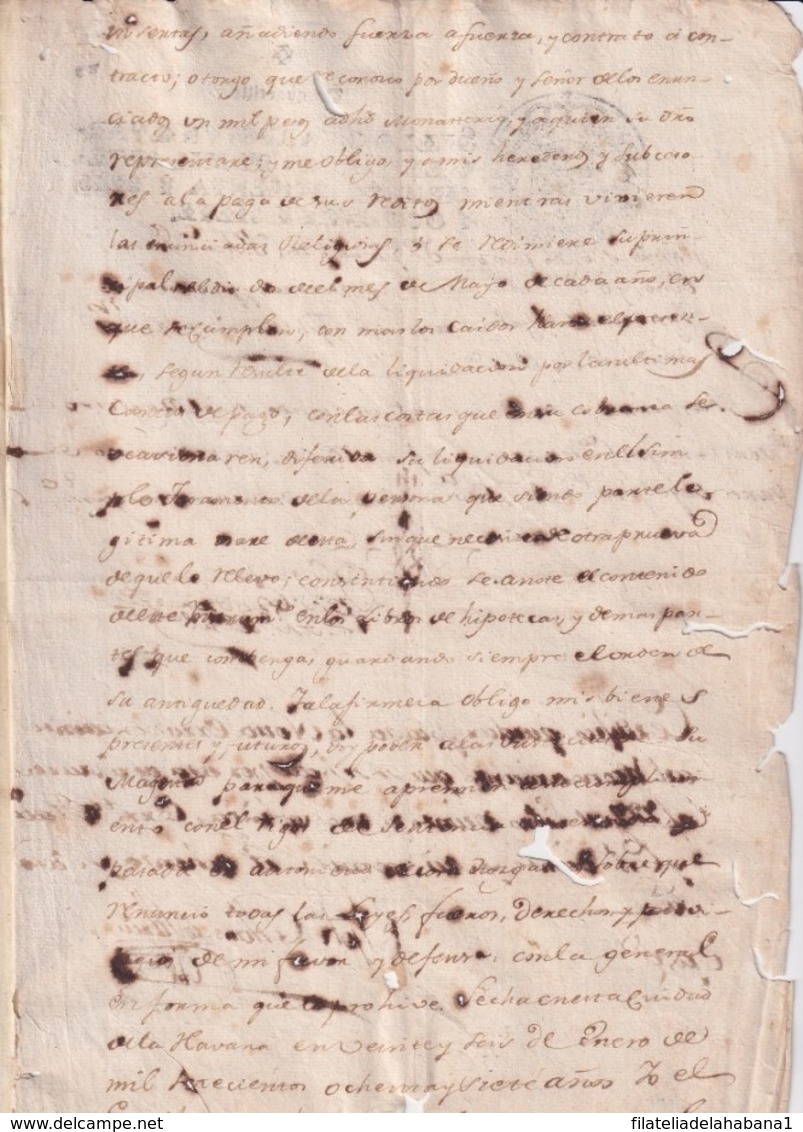 insertas, añadiendo fuerza a fuerza, y contrato á con-
tracto; otorgo que reconosco por dueño y Señor de los enun-
ciados un mil pesos a dho Monasterio, y a quien su dro
representare; y me obligo, y a mis herederos y subceso
res a la paga de sus reditos mientras vivieren
las enunciadas Religiosas, y se redimiere su prin-
cipal el dia dos de el mes de Mayo de cada año, en
que se cumplen, con mas los caidos hasta el presen-
te, segun resulte de la liquidacion por las ultimas
Cartas de pago, con las costas que en su cobransa se
ocacionaren, diferida su liquidacion en el sim
ple Juramento de la persona que siendo parte le-
gitima usare de esta, sin que necesite de otra prueva
de que le relevo; consintiendo se anote el contenido
de este Instrumto en los Libros de hipotecas, y demas par-
tes que combenga, guardando siempre el orden de
su antiguedad. Y a la firmesa obligo mis bienes
presentes y futuros, doy poder a las Justicias de Su
Magestad para que me apremien
ento con el rigor de Sentencia
pasada en autoridad de cosa Jusgada sobre que
renuncio todas las Leyes, fueros, derechos y privi-
legios de mi favor y defensa, con la general
en forma que lo prohive. Fecha en esta Ciudad
de la Havana en veinte y seis de Enero de
mil setecientos ochenta y siete años Yo el
filateliadelahabana1